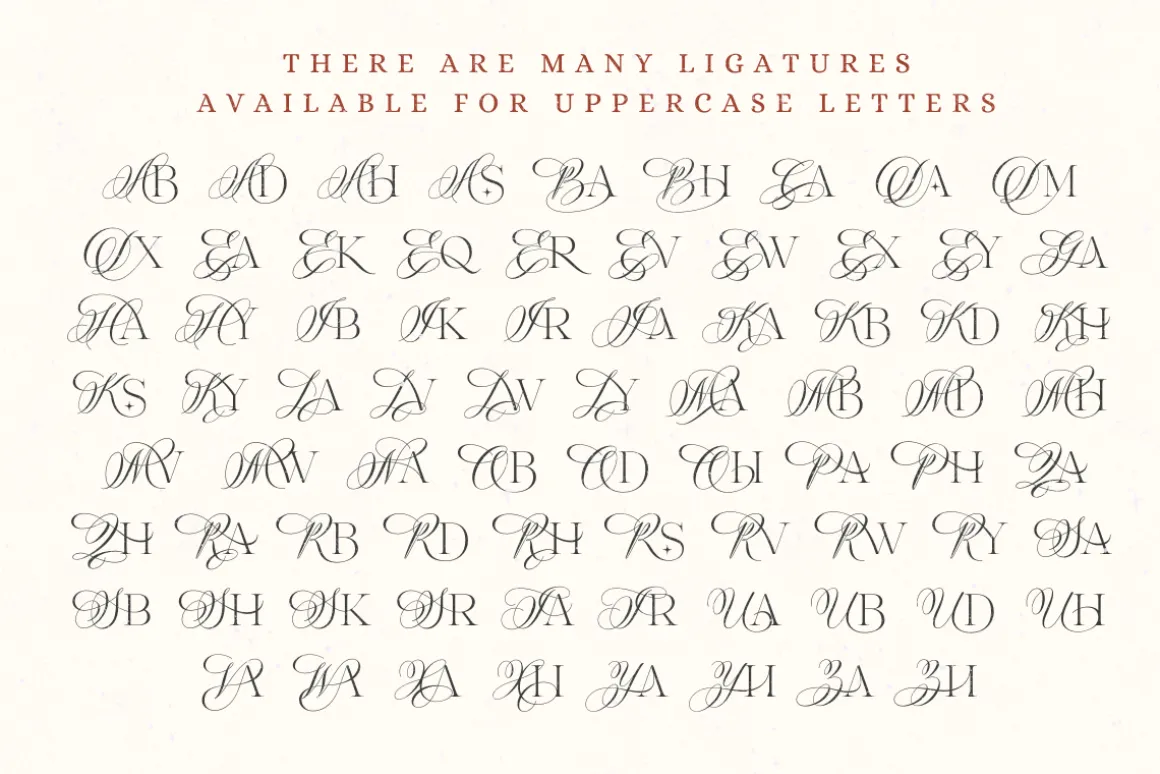 THERE ARE MANY LIGATURES
AVAILABLE FOR UPPERCASE LETTERS
AB AD AH AS BA BH CA DA DM
DX EA EK EQ ER EV EW EX EY GA
HA HY IB IK IR JA KA KB KD KH
KS KY LA LV LW LY MA MB MD MH
MV MW NA OB OD OH PA PH QA
QH RA RB RD RH RS RV RW RY SA
SB SH SK SR TA TR UA UB UD UH
VA WA XA XH YA YH ZA ZH